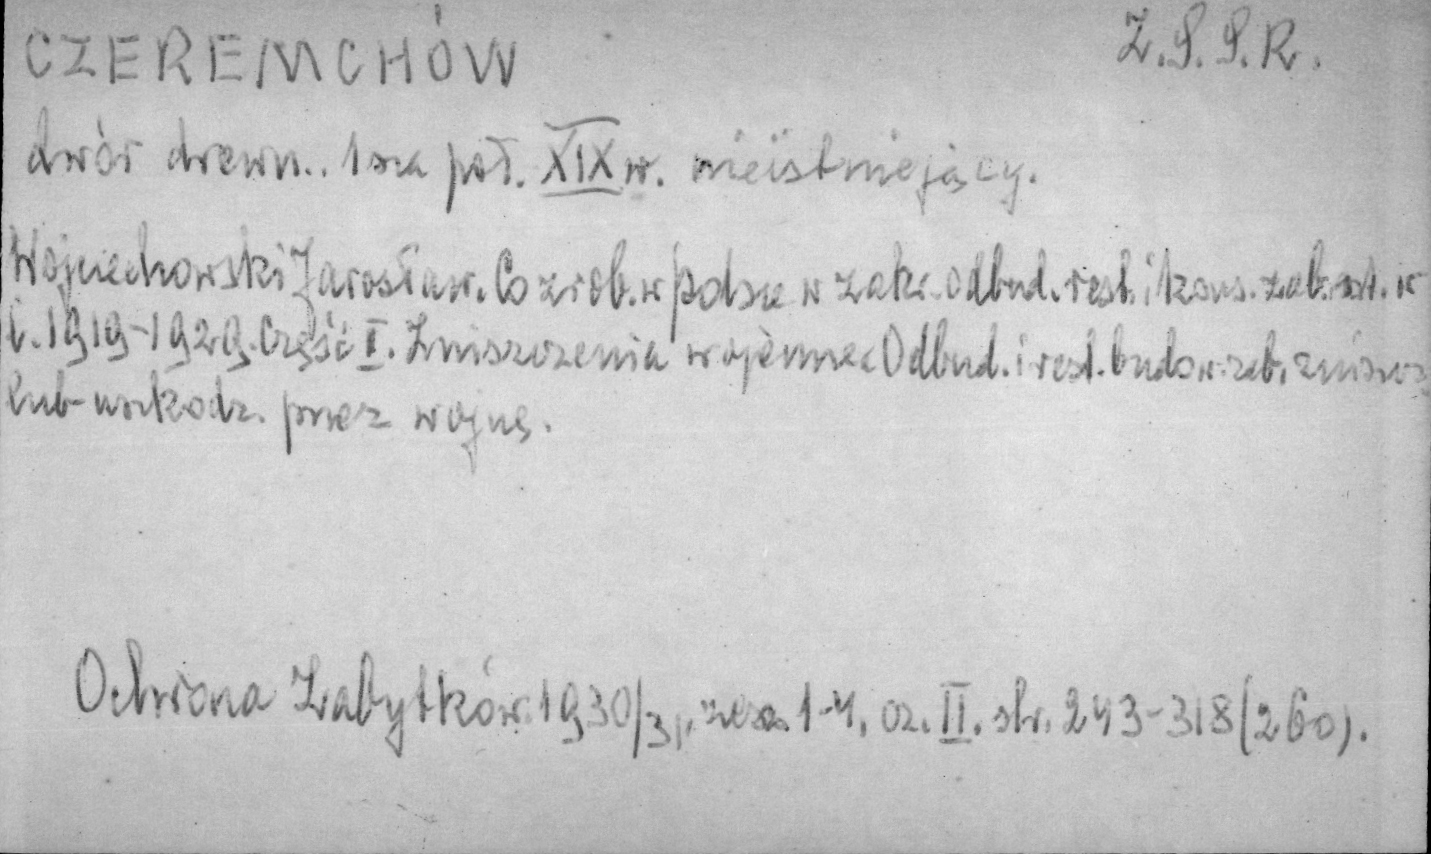 CZEREMCHÓW Z.S.S.R.
dwór drewn.. 1sza poł. XIX w. nieistniejący.
Wojciechowski Jarosław. Co zrob. w Polsce w zakr. odbud. rest. i kons. zab. szt. w
l. 1919-1929. Część I. Zniszczenia wojenne. Odbud. i rest. budow. zab. zniszcz
lub uszkodz. przez wojnę.
Ochrona Zabytków. 1930/31, zesz. 1-4, cz. II. str. 243-318 (260).